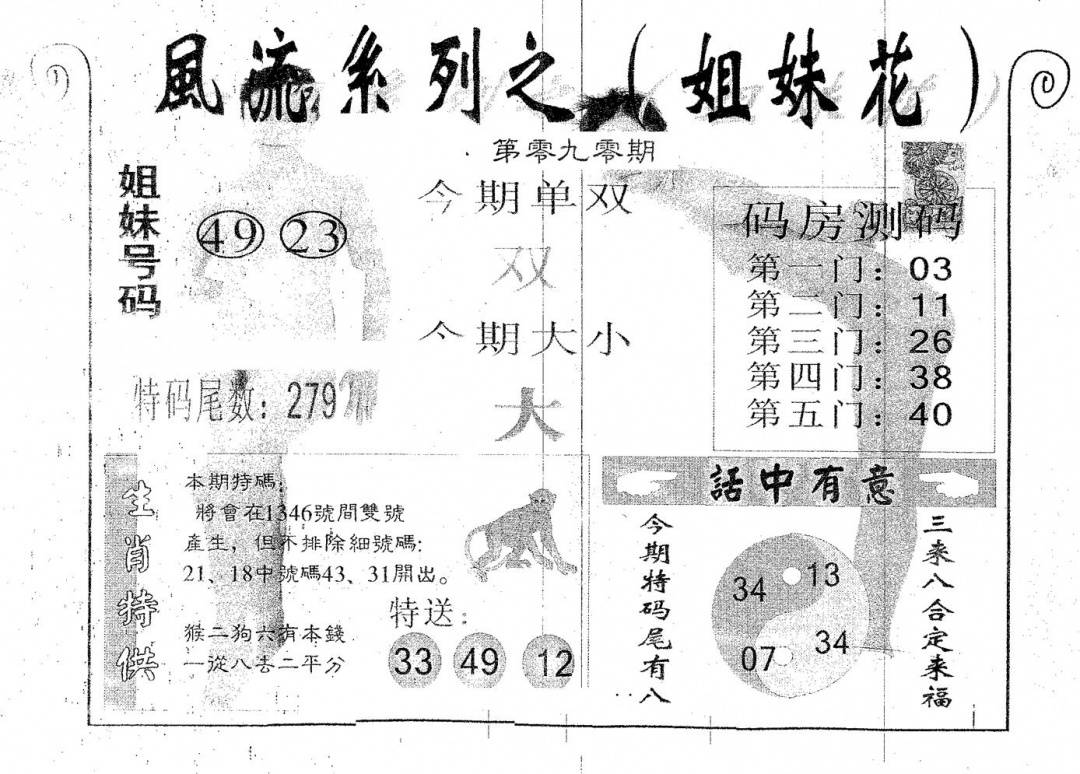 風流系列之（姐妹花）
第零九零期
姐妹号码
49 23
今期单双
双
今期大小
大
特码尾数：279
码房测码
第一门：03
第二门：11
第三门：26
第四门：38
第五门：40
生肖特供
本期特碼：
將會在1346號間雙號
產生，但不排除細號碼：
21、18中號碼43、31開出。
猴二狗六有本錢
一從八去二平分
特送：
33 49 12
話中有意
今期特码尾有八
34 13
07 34
三来八合定来福